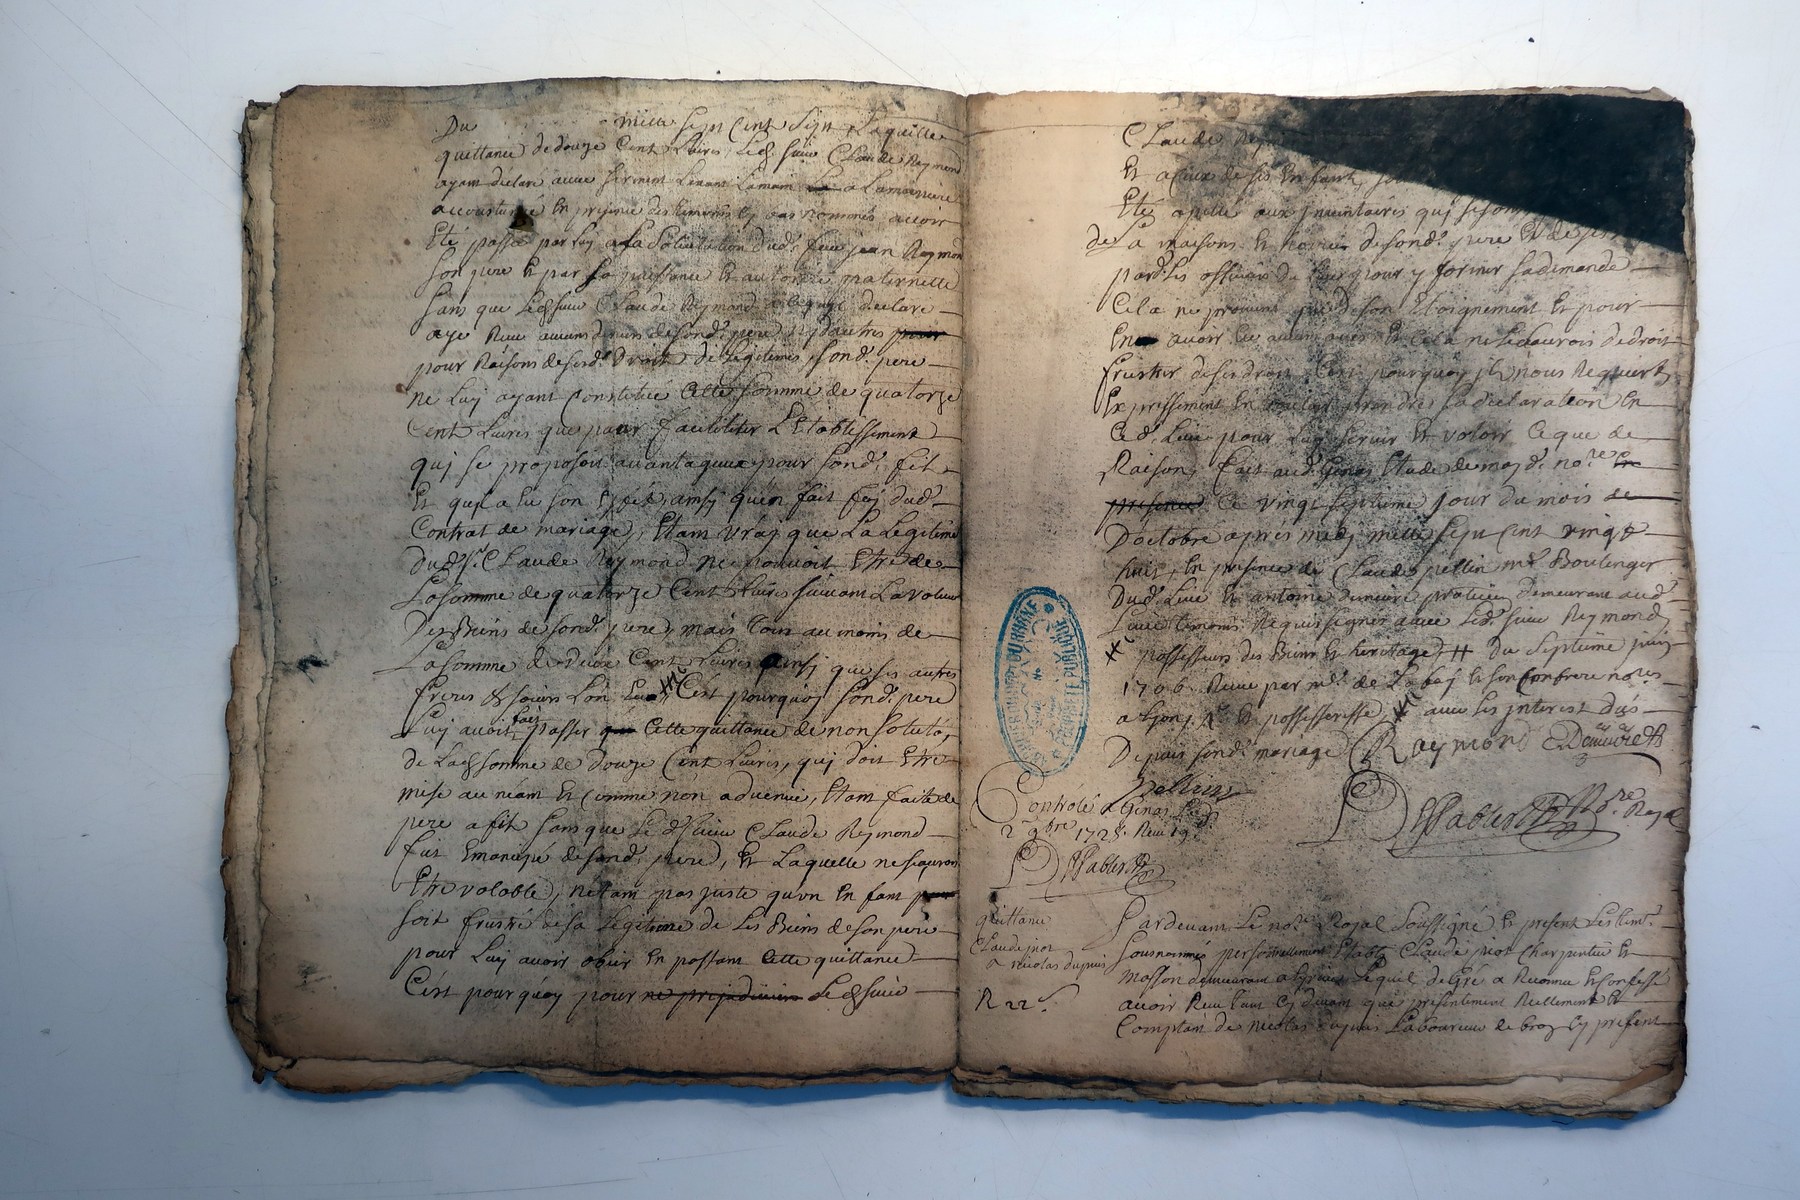 Du mille sept cent sept Laquelle
quittance de douze Cent Livres, Led. sieur Claude Reymond
ayant declaré avec serment Levant Lamain a Lamaniere
accoustumée En presence des temoins Cy bas nommés avoir
Eté passé par Luy a La Solicitation dud. feu jean Reymond
son pere Et par sa puissance Et autorité maternelle
sans que Led. sieur Claude Reymond declare
aye Reçu aucuns deniers de sond. pere ny dautres
pour Raisons de sesd. Droits de Legitimes, sond. pere
ne Luy ayant Constitué Cette somme de quatorze
Cent Livres que pour faciliter L'Etablissement
quj se proposoit avantageux pour sond. fils
Et quj a lu son Effet ainsj qu'en fait foj dud.
Contrat de mariage, Etant vraj que La Legitime
dud. Sr. Claude Reymond ne pouvoit Etre de
La somme de quatorze Cent Livres suivant La valeur
Des Biens de sond. pere, mais bien au moins de
La somme de deux Cent Livres ainsj que ses autres
freres & soeurs L'on Eue C'est pourquoj sond. pere
Luy avoit fait passer Cette quittance de non soluto,
de Lad. somme de douze Cent Livres, quj doit Etre
mise au néant Et Comme non advenue, Etant faite de
pere a fils sans que Le d. sieur Claude Reymond
fut Emancipé de sond. pere, Et Laquelle ne scauroit
Etre valable, n'étant pas juste qu'un Enfant
soit frustré de sa Legitime de Les Biens de son pere
pour Luy avoir obeir En passant Cette quittance
C'est pourquoy pour ne prejudicier Led. sieur
Claude
Et a Ceux de ses Enfants,
Eté apellé aux jnventaires quj se sont
de La maisons Et hoirie de sond. pere Et de
pard. Les officiers du Lieu pour y former sa demande
Cela ne provient que de son Eloignement Et pour
En avoir Eu aucun avis Et Cela ne scauroit de droit
frustrer de ses droits C'est pourquoy jl nous Requiert
Expressement En vouloir prendre sa declaration En
Ced. Lieu pour Luy servir Et valoir Ce que de
Raison, fait aud. Genas Etude de moy d. nore
Ce vingt septieme jour du mois de
D'octobre après midj mille sept cent vingt
huit, En presence de Claude pellin me. Boulenger
Dud. Lieu Et antoine demeure praticien demeurant aud.
Lieu temoins Requis signés avec Led. sieur Reymond
possesseurs des Biens Et heritage # du septieme juin
1706 Reçue par me. de Et son Confrere nores
a Lyon, Et possesseresse, avec Les jnterest dus
Depuis sond. mariage Raymond Demeure
Pellin
Controlé a Genas Le d.
2 9bre 1728. Reçu
Psablier
Psablier Nore. Royal
quittance
Claude piot
a nicolas dupuis
R 22 s.
Pardevant Le nore Royal Soussigné Et present Les tem.
Sousnommés personnellement Etably Claude piot Charpentier Et
masson demeurant a Lequel de Gré a Reconnu Et confessé
avoir Reçu tant Cy devant que presentement Reellement Et
Comptant de nicolas dupuis Laboureur de bros Cy present